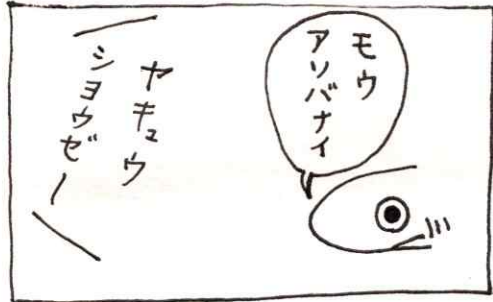 モウ
アソバナイ
ヤキュウ
ショウゼー